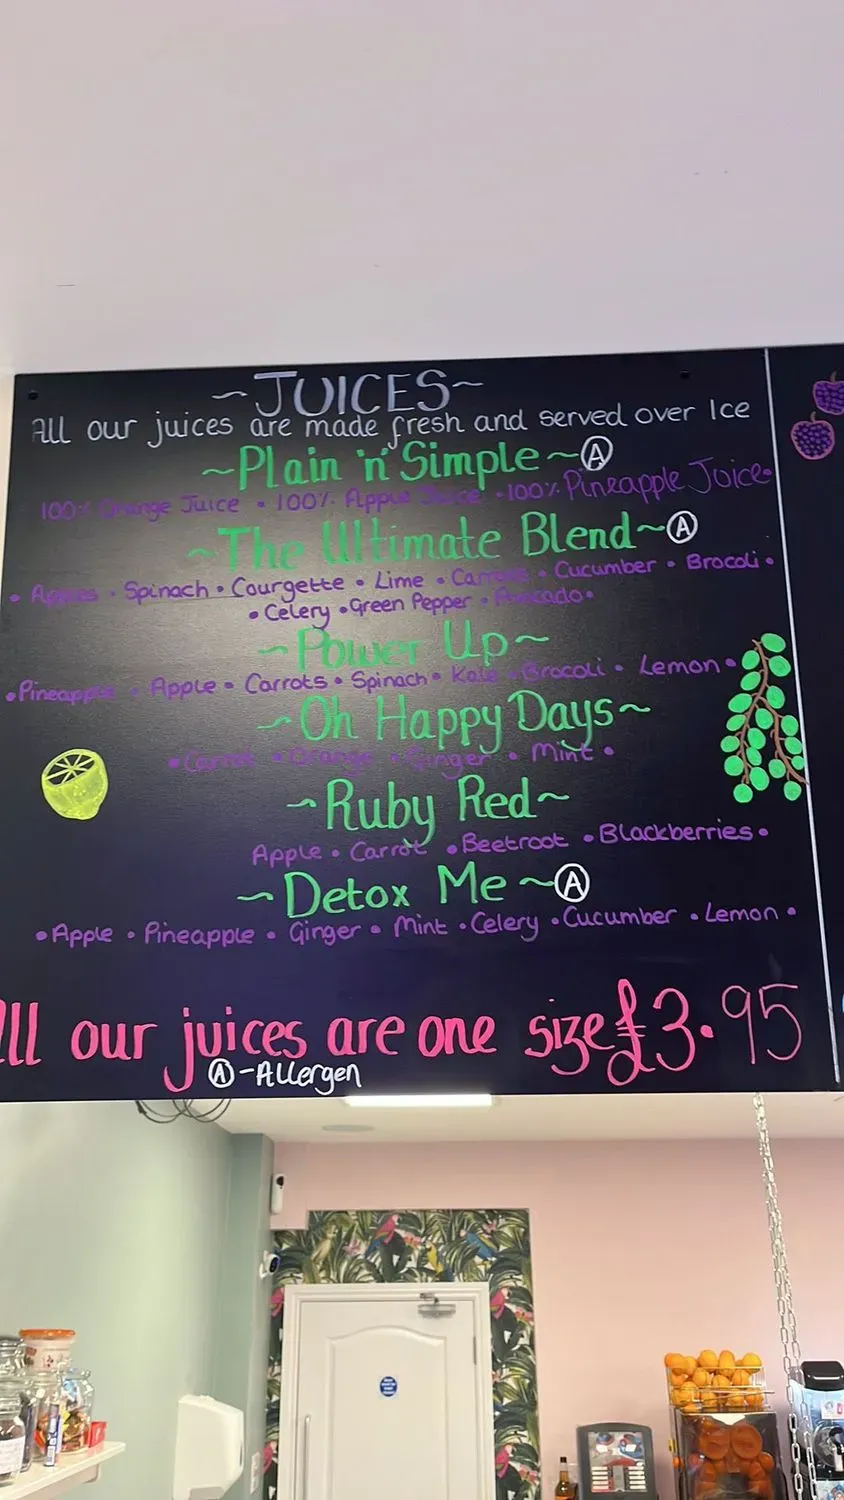 ~JUICES~
All our juices are made fresh and served over Ice
~Plain 'n' Simple~ Ⓐ
100% Orange Juice • 100% Apple Juice • 100% Pineapple Juice•
~The Ultimate Blend~ Ⓐ
• Apples • Spinach • Courgette • Lime • Carrots • Cucumber • Brocoli •
• Celery • Green Pepper • Avocado •
~Power Up~
• Pineapple • Apple • Carrots • Spinach • Kale • Brocoli • Lemon •
~Oh Happy Days~
• Carrot • Orange • Ginger • Mint •
~Ruby Red~
Apple • Carrot • Beetroot • Blackberries •
~Detox Me~ Ⓐ
• Apple • Pineapple • Ginger • Mint • Celery • Cucumber • Lemon •
all our juices are one size £3.95
Ⓐ - Allergen